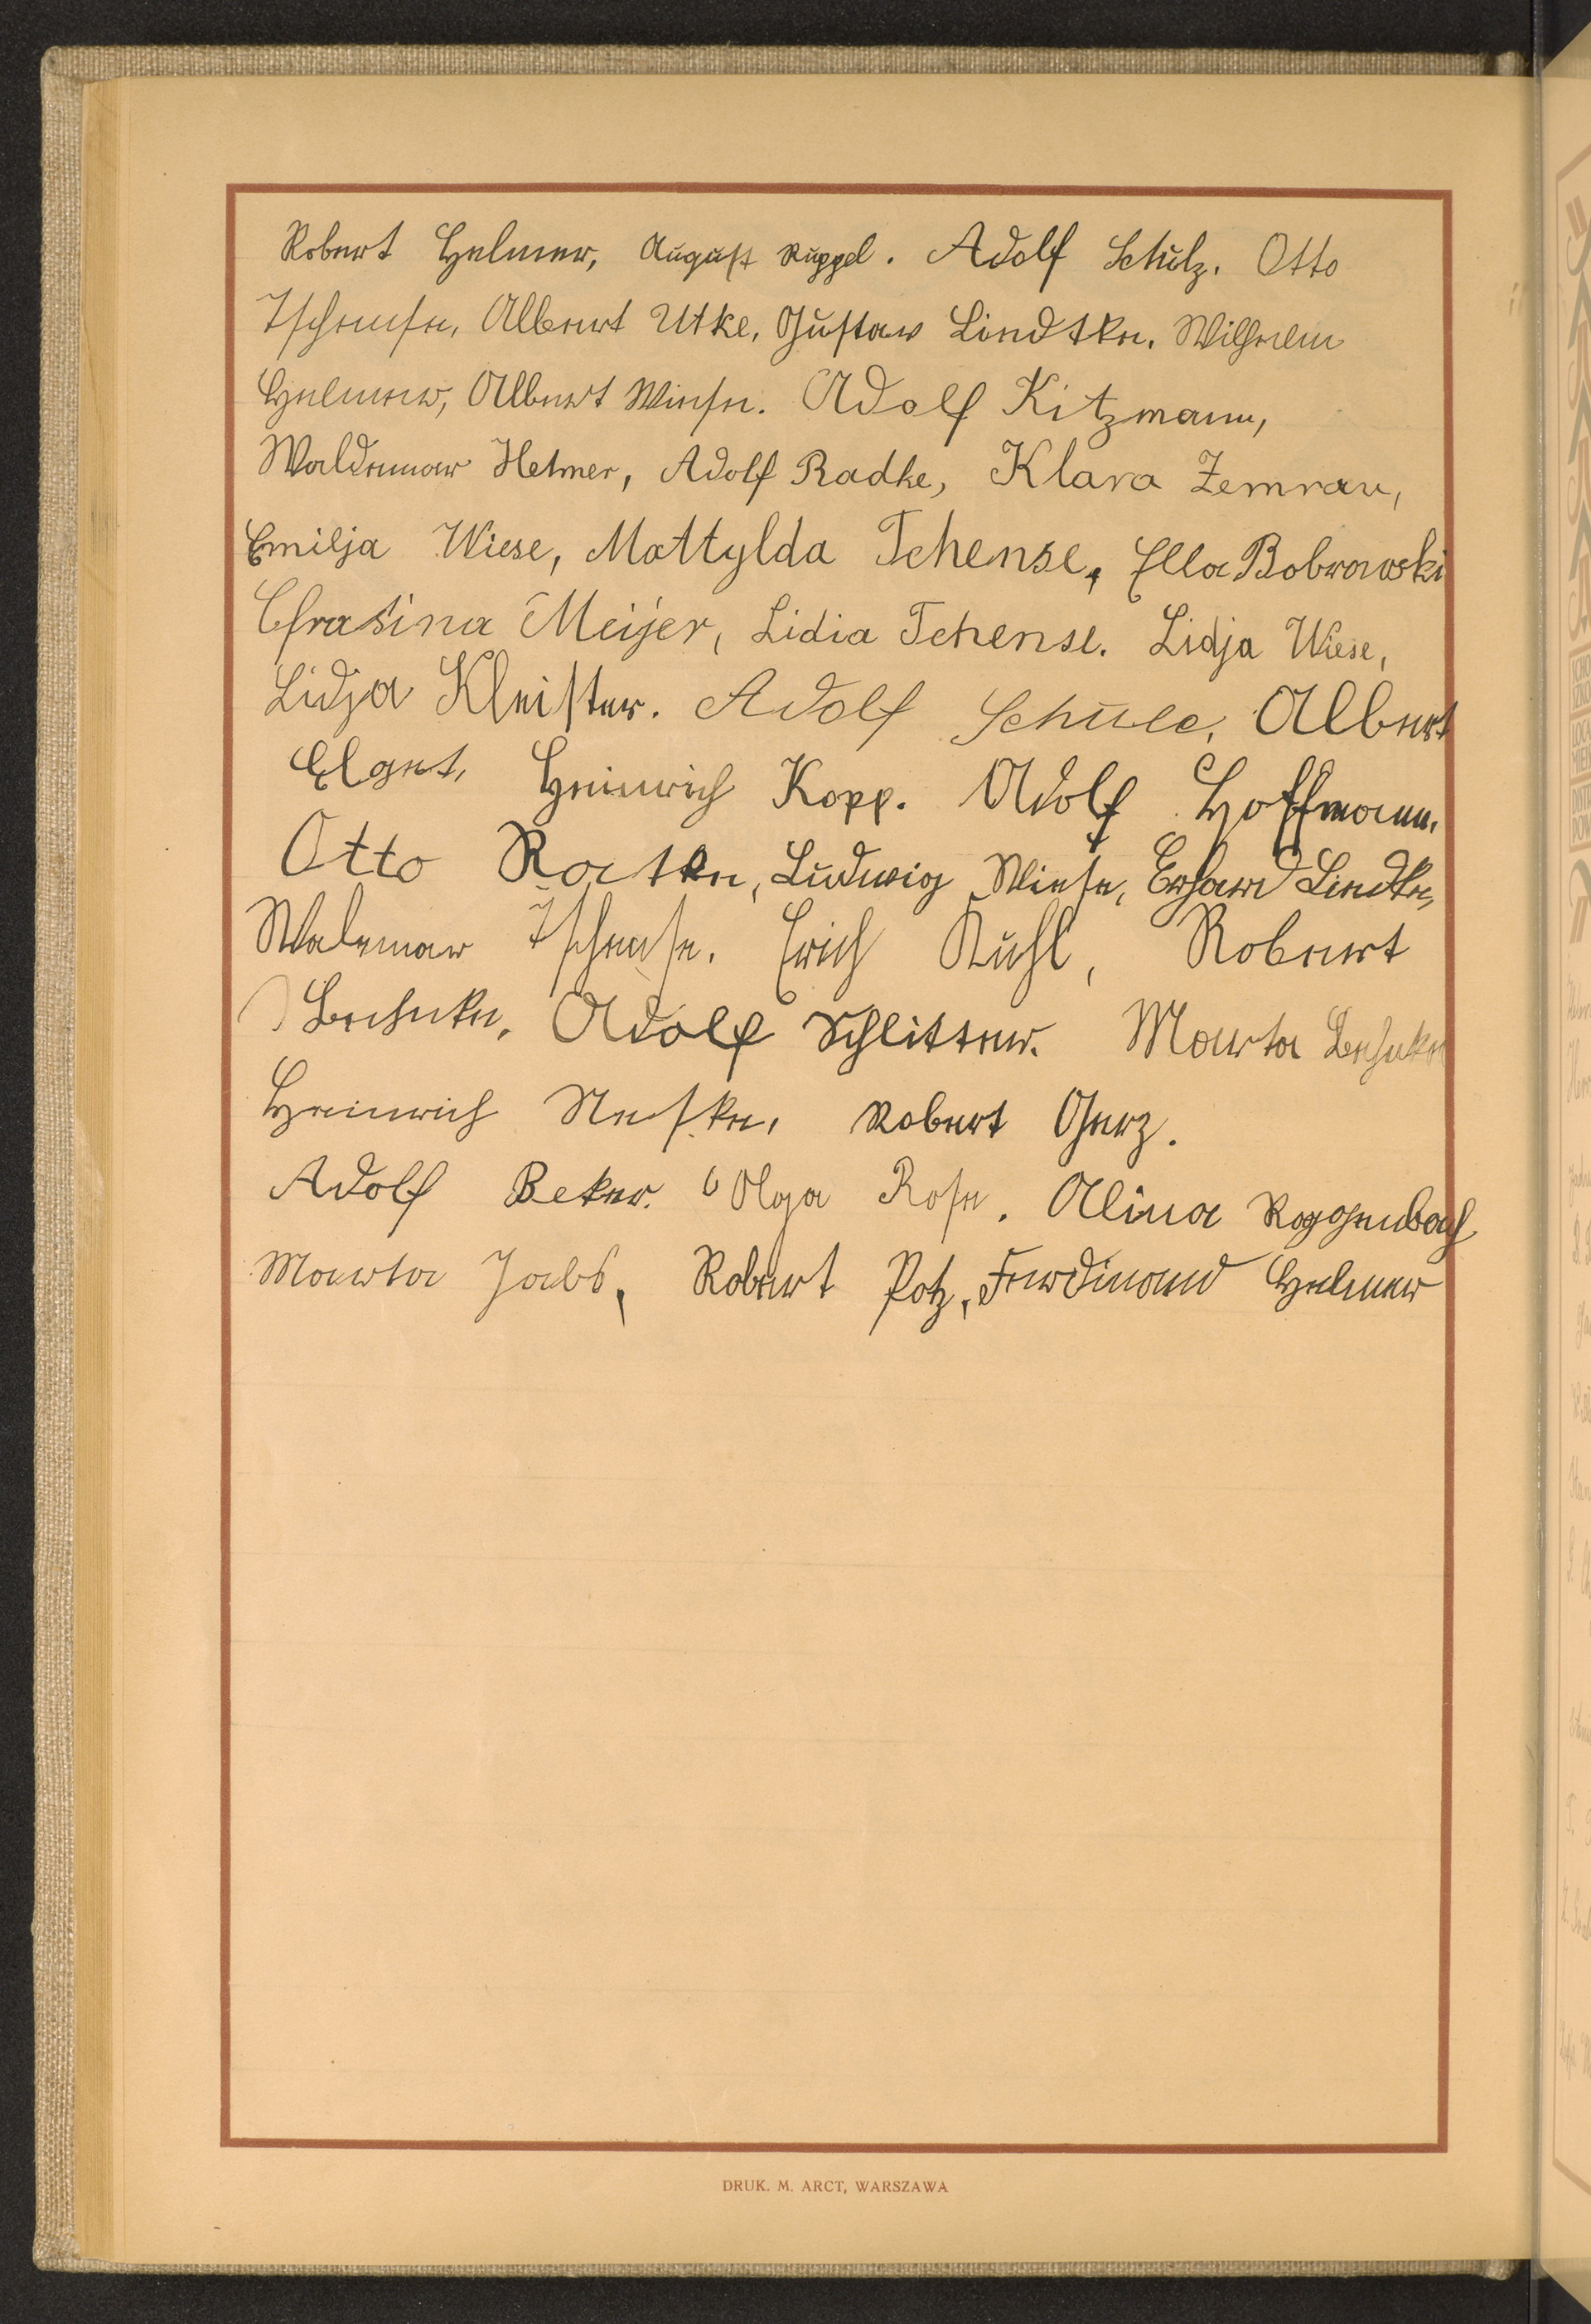 Robert Helmer, August Ruppel. Adolf Schulz. Otto
Tschense, Albert Utke, Gustaw Lindtke. Wilhelm
Helmer, Albert Wiese. Adolf Kitzmann,
Waldemar Helmer, Adolf Radke, Klara Zemrau,
Emilja Wiese, Mattylda Tchense, Ella Bobrowski
Efrasina Meijer, Lidia Tchense. Lidja Wiese,
Lidja Kleister. Adolf Albert
Elgert, Heinrich Kopp. Adolf Hoffmann.
Otto Ratke, Ludwig Wiese, Erhard Lindtke,
Walemar Tschense. Erich Kuhl, Robert
Adolf Schlitter. Marta
Heinrich Robert Gerz.
Adolf Beker. Olga Rose. Alina Roggenbach
Marta Jabs, Robert Potz, Ferdinand Helmer
DRUK. M. ARCT, WARSZAWA